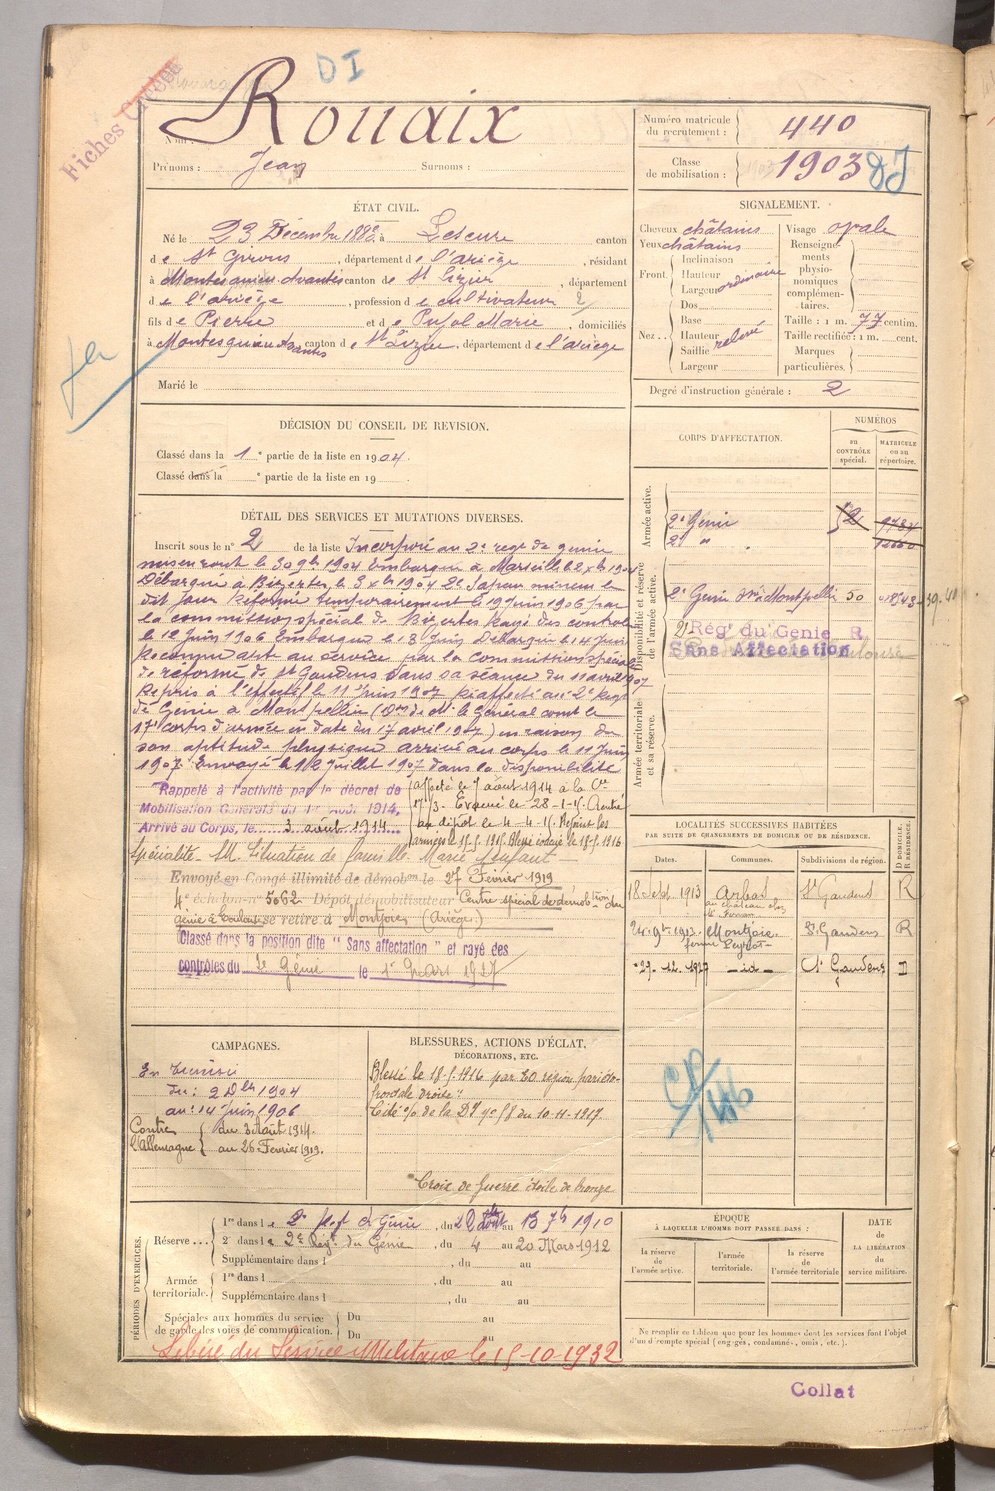 DI
Fiches
Nom : Rouaix
Prénoms : Jean Surnoms :
Numéro matricule du recrutement : 440
Classe de mobilisation : 1903 DI
ÉTAT CIVIL.
Né le 23 Décembre 1883, à Lescure canton
de St Girons, département de l'ariège, résidant
à Montesquieu Avantès canton de St Lizier, département
de l'ariège, profession de cultivateur
fils de Pierre et de Pujol Marie, domiciliés
à Montesquieu Avantès canton de St Lizier, département de l'ariège
Marié le
SIGNALEMENT.
Cheveux châtains
Yeux châtains
Front. Inclinaison
Hauteur
Largeur ordinaire
Nez. Dos
Base
Hauteur
Saillie relevé
Largeur
Visage ovale
Renseignements physionomiques complémentaires.
Taille : 1 m. 77 centim.
Taille rectifiée : 1 m. cent.
Marques particulières.
Degré d'instruction générale : 2
DÉCISION DU CONSEIL DE REVISION.
Classé dans la 1e partie de la liste en 1904.
Classé dans la e partie de la liste en 19
CORPS D'AFFECTATION.
NUMÉROS
au CONTRÔLE spécial.
MATRICULE ou au répertoire.
Armée active.
2e Génie
2e "
Disponibilité et réserve de l'armée active.
2e Génie Montpellier 50
2e Rég' du Génie R.
Sans Affectation
Armée territoriale et sa réserve.
DÉTAIL DES SERVICES ET MUTATIONS DIVERSES.
Inscrit sous le n° 2 de la liste Incorporé au 2e regt de génie
mis en route le 30 9bre 1904 Embarqué à Marseille le 2 xbre 1904
Débarqué à Bizerte le 3 xbre 1904 2e Sapeur mineur le
dit jour Réformé temporairement le 19 Juin 1906 par
la commission spéciale de Bizerte Rayé des contrôles
le 12 Juin 1906 Embarqué le 13 Juin Débarqué le 14 Juin
Reconnu apt au service par la commission spéciale
de réforme de St Gaudens dans sa séance du 11 avril 1907
Repris à l'effectif le 11 Juin 1907 Réaffecté au 2e Regt
de Génie à Montpellier (Don de M. le Général comt le
17e corps d'armée en date du 17 avril 1907) en raison de
son aptitude physique arrivé au corps le 11 Juin
1907 Envoyé le 12 Juillet 1907 dans la disponibilité
Rappelé à l'activité par le décret de
Mobilisation Générale du 1er Août 1914,
Arrivé au Corps, le 3 août 1914
affecté le 7 août 1914 à la Cie
17/3. Evacué le 28-1-15. Rentré
au dépôt le 4-4-15. Rejoint les
armées le
Spécialité Situation de famille. Marié
Envoyé en Congé illimité de démobon le 27 Février 1919
4e échelon n° 5062 Dépôt démobilisateur Centre spécial de démobtion du
génie à Toulouse se retire à Montjoie (Ariège)
Classé dans la position dite " Sans affectation " et rayé des
contrôles du 2e Génie le 1er Mars 1927
LOCALITÉS SUCCESSIVES HABITÉES
PAR SUITE DE CHANGEMENTS DE DOMICILE OU DE RÉSIDENCE.
Dates. Communes. Subdivisions de région. D DOMICILE. R RÉSIDENCE.
18 Sept. 1913 Arbas St Gaudens R
24 9bre 1913 Montjoie St Gaudens R
29-12-1927 - id - St Gaudens D
CAMPAGNES.
En Tunisie
du : 2 Dbre 1904
au : 14 Juin 1906
Contre l'Allemagne du 3 Août 1914
au 26 Février 1919.
BLESSURES, ACTIONS D'ÉCLAT,
DÉCORATIONS, ETC.
Blessé le 18-5-1916 par EO région pariéto-
frontale droite.
Cité O/ de la DI n° 58 du 10-11-1917.
Croix de Guerre étoile de bronze
PÉRIODES D'EXERCICES.
Réserve... 1re dans le 2e Regt de Génie, du 22 août au 13 7bre 1910
2e dans le 2e Régt du Génie, du 4 au 20 Mars 1912
Supplémentaire dans l , du au
Armée territoriale. 1re dans l , du au
Supplémentaire dans l , du au
Spéciales aux hommes du service de garde des voies de communication. Du au
Du au
Libéré du Service Militaire le 15-10-1932
ÉPOQUE
À LAQUELLE L'HOMME DOIT PASSER DANS :
la réserve de l'armée active.
l'armée territoriale.
la réserve de l'armée territoriale
DATE de LA LIBÉRATION du service militaire.
Ne remplir ce tableau que pour les hommes dont les services font l'objet
d'un décompte spécial (engagés, condamnés, omis, etc.).
Collat